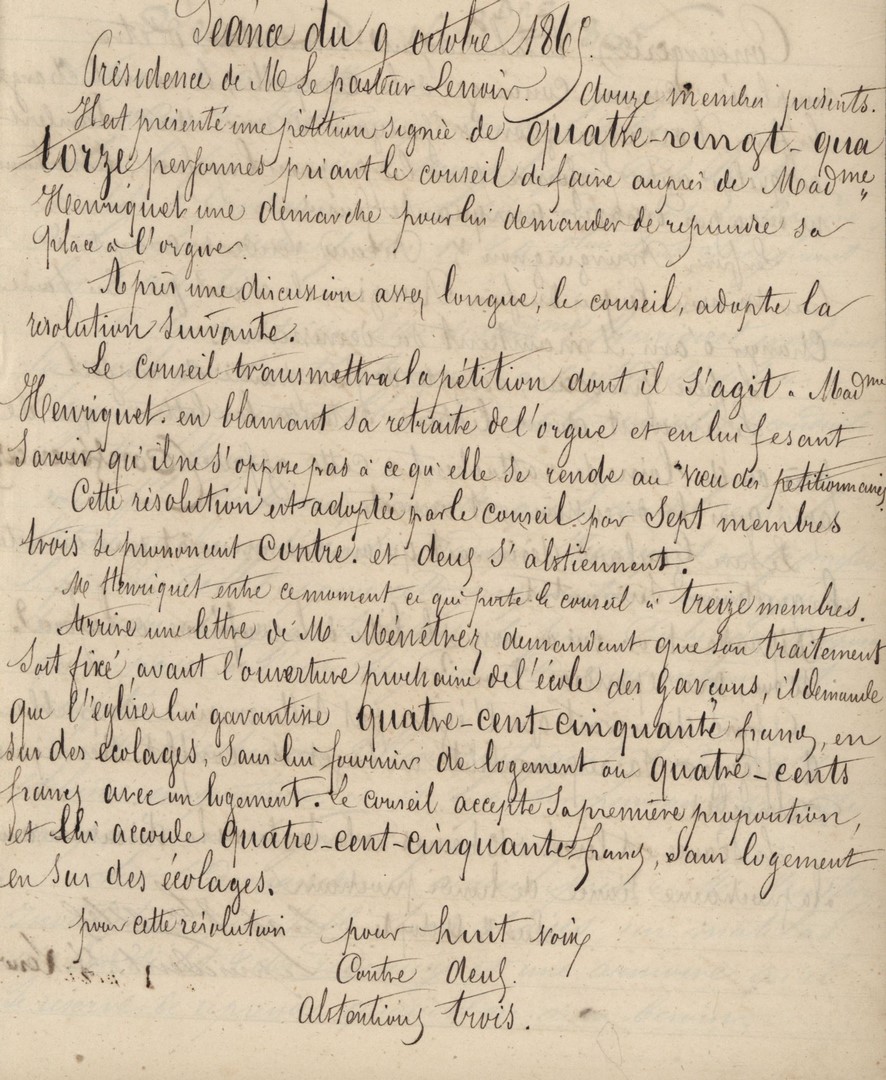 Séance du 9 octobre 1865.
Présidence de M Le pasteur Lenoir. douze membres présents.
Il est présenté une pétition signée de quatre-vingt-qua
torze personnes priant le conseil de faire auprès de Mad^me
Henriquet une démarche pour lui demander de reprendre sa
place a l'orgue.
Après une discussion assez longue, le conseil, adopte la
résolution suivante.
Le conseil transmettra la pétition dont il s'agit a Mad^me
Henriquet. en blamant sa retraite de l'orgue et en lui fesant
savoir qu'il ne s'oppose pas à ce qu'elle se rende au vœu des petitionnaires.
Cette résolution est adoptée par le conseil par Sept membres
trois se prononcent contre. et deux s'abstiennent.
Mr Henriquet entre ce moment ce qui porte le conseil à treize membres.
Arrive une lettre de M Ménétrez demandant que son traitement
soit fixé avant l'ouverture prochaine de l'école des Garçons, il demande
que l'église lui garantisse quatre-cent-cinquante francs, en
sus des écolages, sans lui fournir de logement ou quatre-cents
francs avec un logement. Le conseil accepte sa première proposition,
et lui accorde quatre-cent-cinquante francs, sans logement
en sus des écolages.
pour cette résolution pour huit voix
Contre deux.
Abstentions trois.